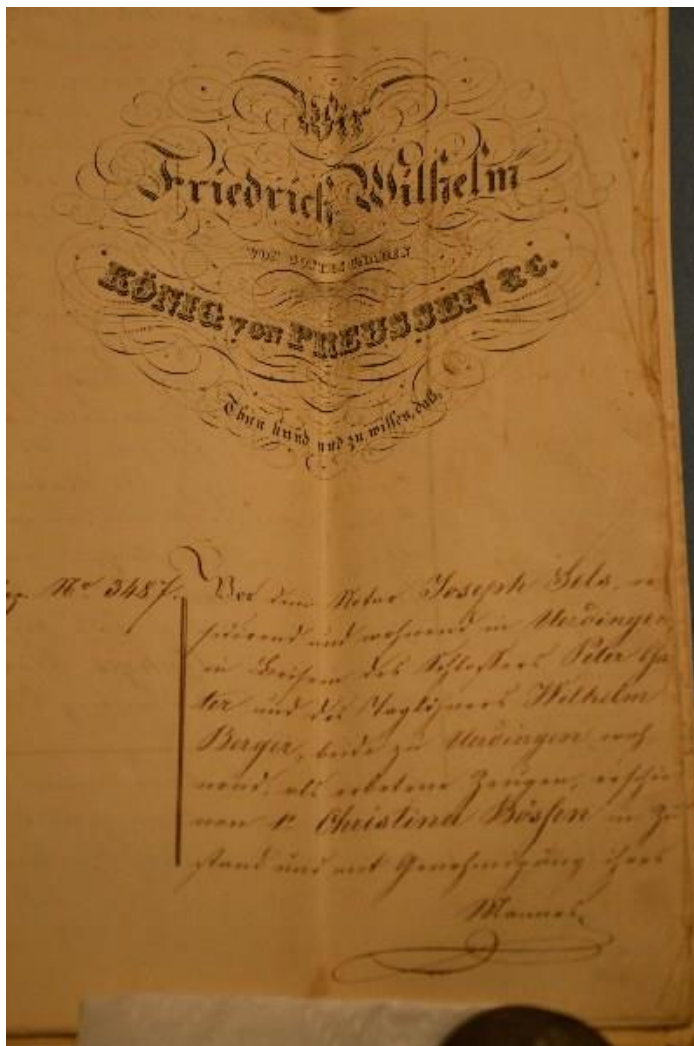 Wir
Friedrich Wilhelm
VON GOTTES GNADEN
KÖNIG VON PREUSSEN &c.
Thun kund und zu wissen, daß,
Nº 3487.
Vor dem Notar Joseph Bels, re
sidirend und wohnend in Uerdingen
in Beisein des Schlossers Peter
ter und des Taglöhners Wilhelm
Berger, beide zu Uerdingen woh
nend, als erbetene Zeugen, erschie
nen 1º Christina Bössen in
stand und mit Genehmigung ihres
Mannes,